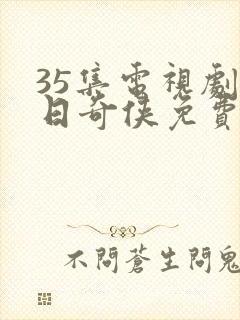 35集電視劇
日奇俠免費
不問蒼生問鬼